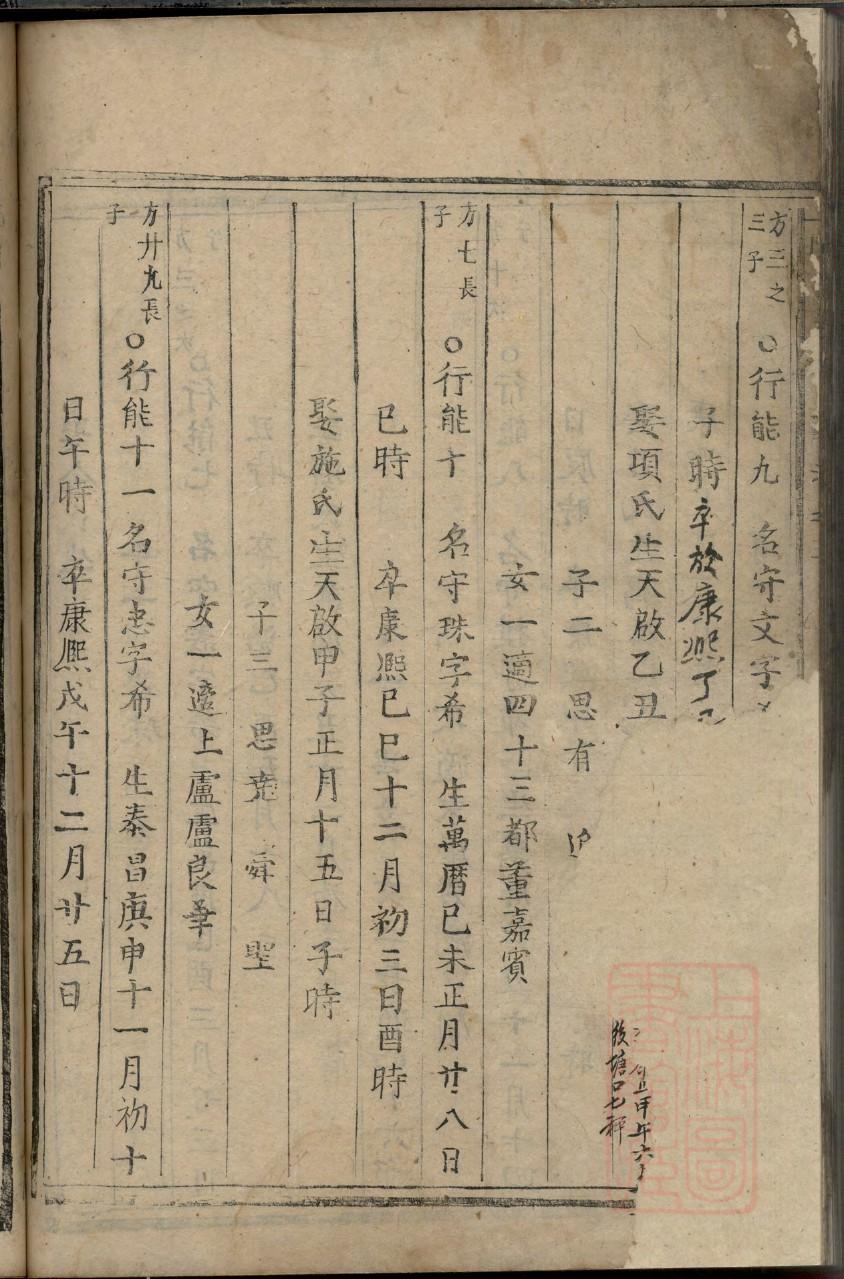 方三之
三子
○行能九　名守文字
子時卒於康熙丁
娶項氏生天啟乙丑
子二　思有
女一適四十三都董嘉賓
方七長
子
○行能十　名守珠字希　生萬曆己未正月廿八日
巳時　卒康熙己巳十二月初三日酉時
娶施氏生天啟甲子正月十五日子時
子三　思堯　舜　聖
女一適上盧盧良
方廿九長
子
○行能十一名守忠字希　生泰昌庚申十一月初十
日午時　卒康熙戊午十二月廿五日
甲午六
後塘口七秤
上海圖